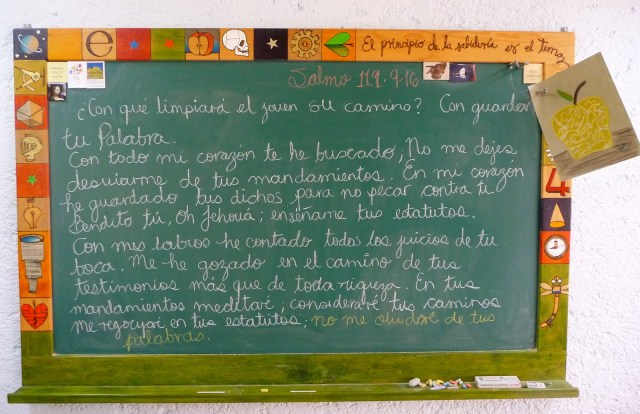 e
El principio de la sabiduría es el temor
Salmo 119.9-16
¿Con qué limpiará el joven su camino? Con guardar
tu Palabra.
Con todo mi corazón te he buscado; No me dejes
desviarme de tus mandamientos. En mi corazón
he guardado tus dichos para no pecar contra ti
Bendito tú, oh Jehová; enséñame tus estatutos.
Con mis labios he contado todos los juicios de tu
boca. Me he gozado en el camino de tus
testimonios más que de toda riqueza. En tus
mandamientos meditaré; consideraré tus caminos
me regocijaré en tus estatutos; no me olvidaré de tus
palabras.
4